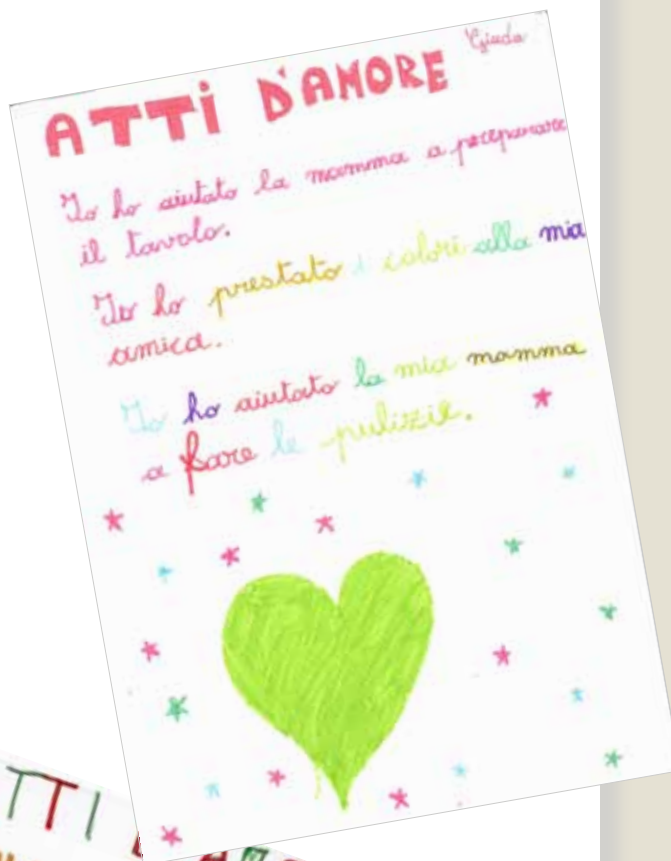 Giada
ATTI D'AMORE
Io ho aiutato la mamma a preparare
il tavolo.
Io ho prestato i colori alla mia
amica.
Io ho aiutato la mia mamma
a fare le pulizie.
TTI